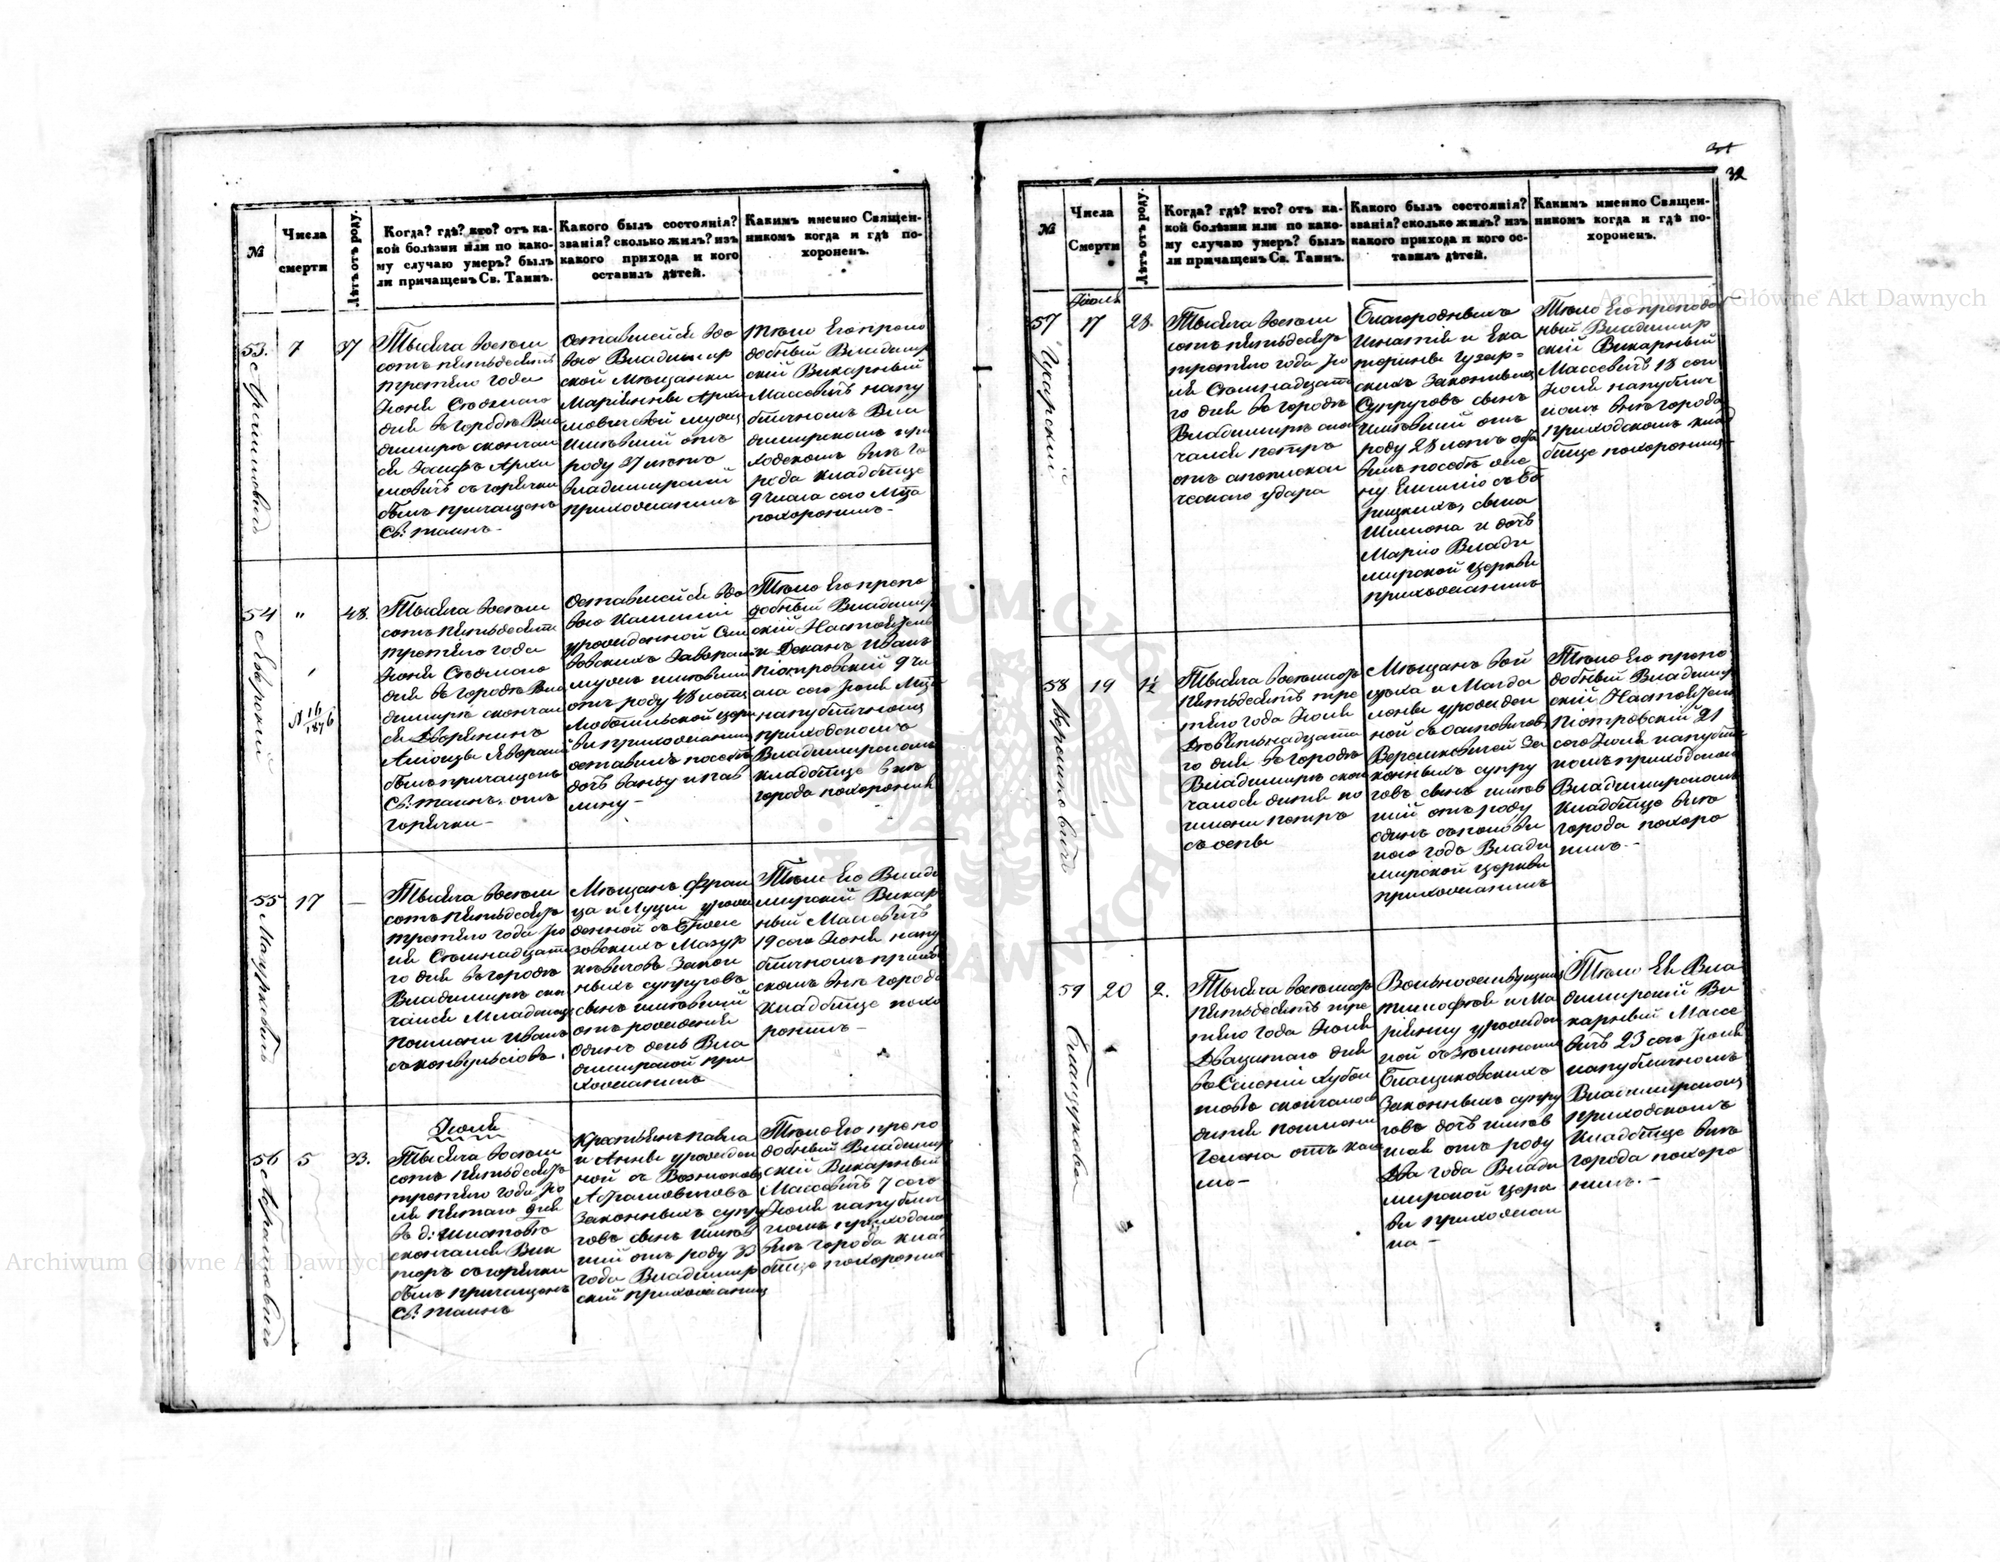 №
Числа
смерти
Лѣтъ отъ роду.
Когда? гдѣ? кто? отъ ка-
кой болѣзни или по како-
му случаю умеръ? былъ
ли причащенъ Св. Таин.
Какого былъ состоянія?
званія? сколько жилъ? изъ
какого прихода и кого
оставилъ дѣтей.
Какимъ именно Священ-
никомъ когда и гдѣ по-
хороненъ.
53.
7
37
Тысяча восемь
сотъ пятьдесятъ
третьяго года
Іюня Седьмаго
дня въ городѣ Вла
димирѣ скончал
ся Іосифъ
съ горячки
былъ причащенъ
Св. таинъ
Оставшейся вдо
вою Владимир
ской Мѣщанки
Маріянны
мужъ
Имѣвшій отъ
роду 37 лѣтъ
Владимирскій
прихожанинъ
Тѣло Его препо
добный Владимир
скій Викарный
Массевичъ на пу
бличномъ Вла
димирскомъ при
ходскомъ внѣ го
рода кладбище
9 числа сего М-ца
похоронилъ
54
"
48.
16
1876
Тысяча восемь
сотъ пятьдесятъ
третьяго года
Іюня Седьмаго
дня въ городѣ Вла
димирѣ скончал
ся Дворянинъ
былъ причащенъ
Св. таинъ. отъ
горячки
Оставшейся вдо
вою
урожденной
мужъ имѣвшій
отъ роду 48 лѣтъ
прихожанинъ
оставилъ послѣ
дочь
Тѣло Его препо
добный Владимир
скій Настоятель
и Деканъ Иванъ
Піотровскій 9 чи
сла сего Іюня М-ца
на публичномъ
приходскомъ
Владимирскомъ
кладбище внѣ
города похоронилъ
55
17
—
Мазуркевичъ
Тысяча восемь
сотъ пятьдесятъ
третьяго года Ію
ня Семнадцата
го дня въ городѣ
Владимирѣ скон
чался Младенецъ
по имени Иванъ
съ конвульсіовъ.
Мѣщанъ Фран
ца и Луціи урож
денной съ
Мазур
кевичовъ Закон
ныхъ супруговъ
сынъ имѣвшій
отъ рожденія
Одинъ день Вла
димирской при
хожанинъ
Тѣло Его Влади
мирскій Викар
ный Массевичъ
19 сего Іюня на пу
бличномъ приход
скомъ внѣ города
кладбище похо
ронилъ
Іюля
56
5
33.
Абрамовичъ
Тысяча восемь
сотъ пятьдесятъ
третьяго года Ію
ля пятаго дня
въ д:
скончался Вик
торъ съ горячки
былъ причащенъ
Св. таинъ
Крестьянъ Павла
и Анны урожден
ной съ
Абрамовичовъ
Законныхъ супру
говъ сынъ имѣв
шій отъ роду 33
года Владимир
скій прихожанинъ
Тѣло Его препо
добный Владимир
скій Викарный
Массевичъ 7 сего
Іюля на публич
номъ приходскомъ
внѣ города клад
бище похоронилъ
32
№
Числа
Смерти
Лѣтъ отъ роду.
Когда? гдѣ? кто? отъ ка-
кой болѣзни или по како-
му случаю умеръ? былъ
ли причащенъ Св. Таин.
Какого былъ состоянія?
званія? сколько жилъ? изъ
какого прихода и кого ос-
тавилъ дѣтей.
Какимъ именно Священ-
никомъ когда и гдѣ по-
хороненъ.
Іюль
57
17
28.
Тысяча восемь
сотъ пятьдесятъ
третьяго года Ію
ля Семнадцата
го дня въ городѣ
Владимирѣ скон
чался Петръ
отъ апоплекси
ческаго удара
Благородныхъ
Игнатія и Ека
терины
скихъ Законныхъ
Супруговъ сынъ
Имѣвшій отъ
роду 28 лѣтъ оста
вилъ послѣ же
ну
сына
Шимона и дочь
Марію Влади
мирской церкви
прихожанинъ
Тѣло Его преподоб
ный Владимир
скій Викарный
Массевичъ 18 сего
Іюля на публич
номъ внѣ города
приходскомъ клад
бище похоронилъ
58
19
1½
Верошковичъ
Тысяча восемьсотъ
пятьдесятъ тре
тьяго года Іюля
Девятнадцата
го дня въ городѣ
Владимирѣ скон
чалося дитя по
имени Петръ
съ оспы
Мѣщанъ Вой
цѣха и Магда
лены урожден
ной съ
Верошковичей За
конныхъ супру
говъ сынъ имѣв
шій отъ роду
одинъ съ полови
ною годъ Влади
мирской церкви
прихожанинъ
Тѣло Его препо
добный Владимир
скій Настоятель
Піотровскій 21
сего Іюля на публич
номъ приходскомъ
Владимирскомъ
кладбище внѣ
города похоро
нилъ.
59
20
2.
Тысяча восемьсотъ
пятьдесятъ тре
тьяго года Іюля
Двадцатаго дня
въ Селеніи
скончалось
дитя по имени
Гелена отъ каш
лю
Вольножительствующихъ
Тимофея и Ма
ріянны урожден
ной съ
Законныхъ супру
говъ дочь имѣв
шая отъ роду
Два года Влади
мирской церк
ви прихожан
ка
Тѣло Ея Вла
димирскій Ви
карный Массе
вичъ 23 сего Іюля
на публичномъ
Владимирскомъ
приходскомъ
кладбище внѣ
города похоро
нилъ.
Archiwum Główne Akt Dawnych
Archiwum Główne Akt Dawnych